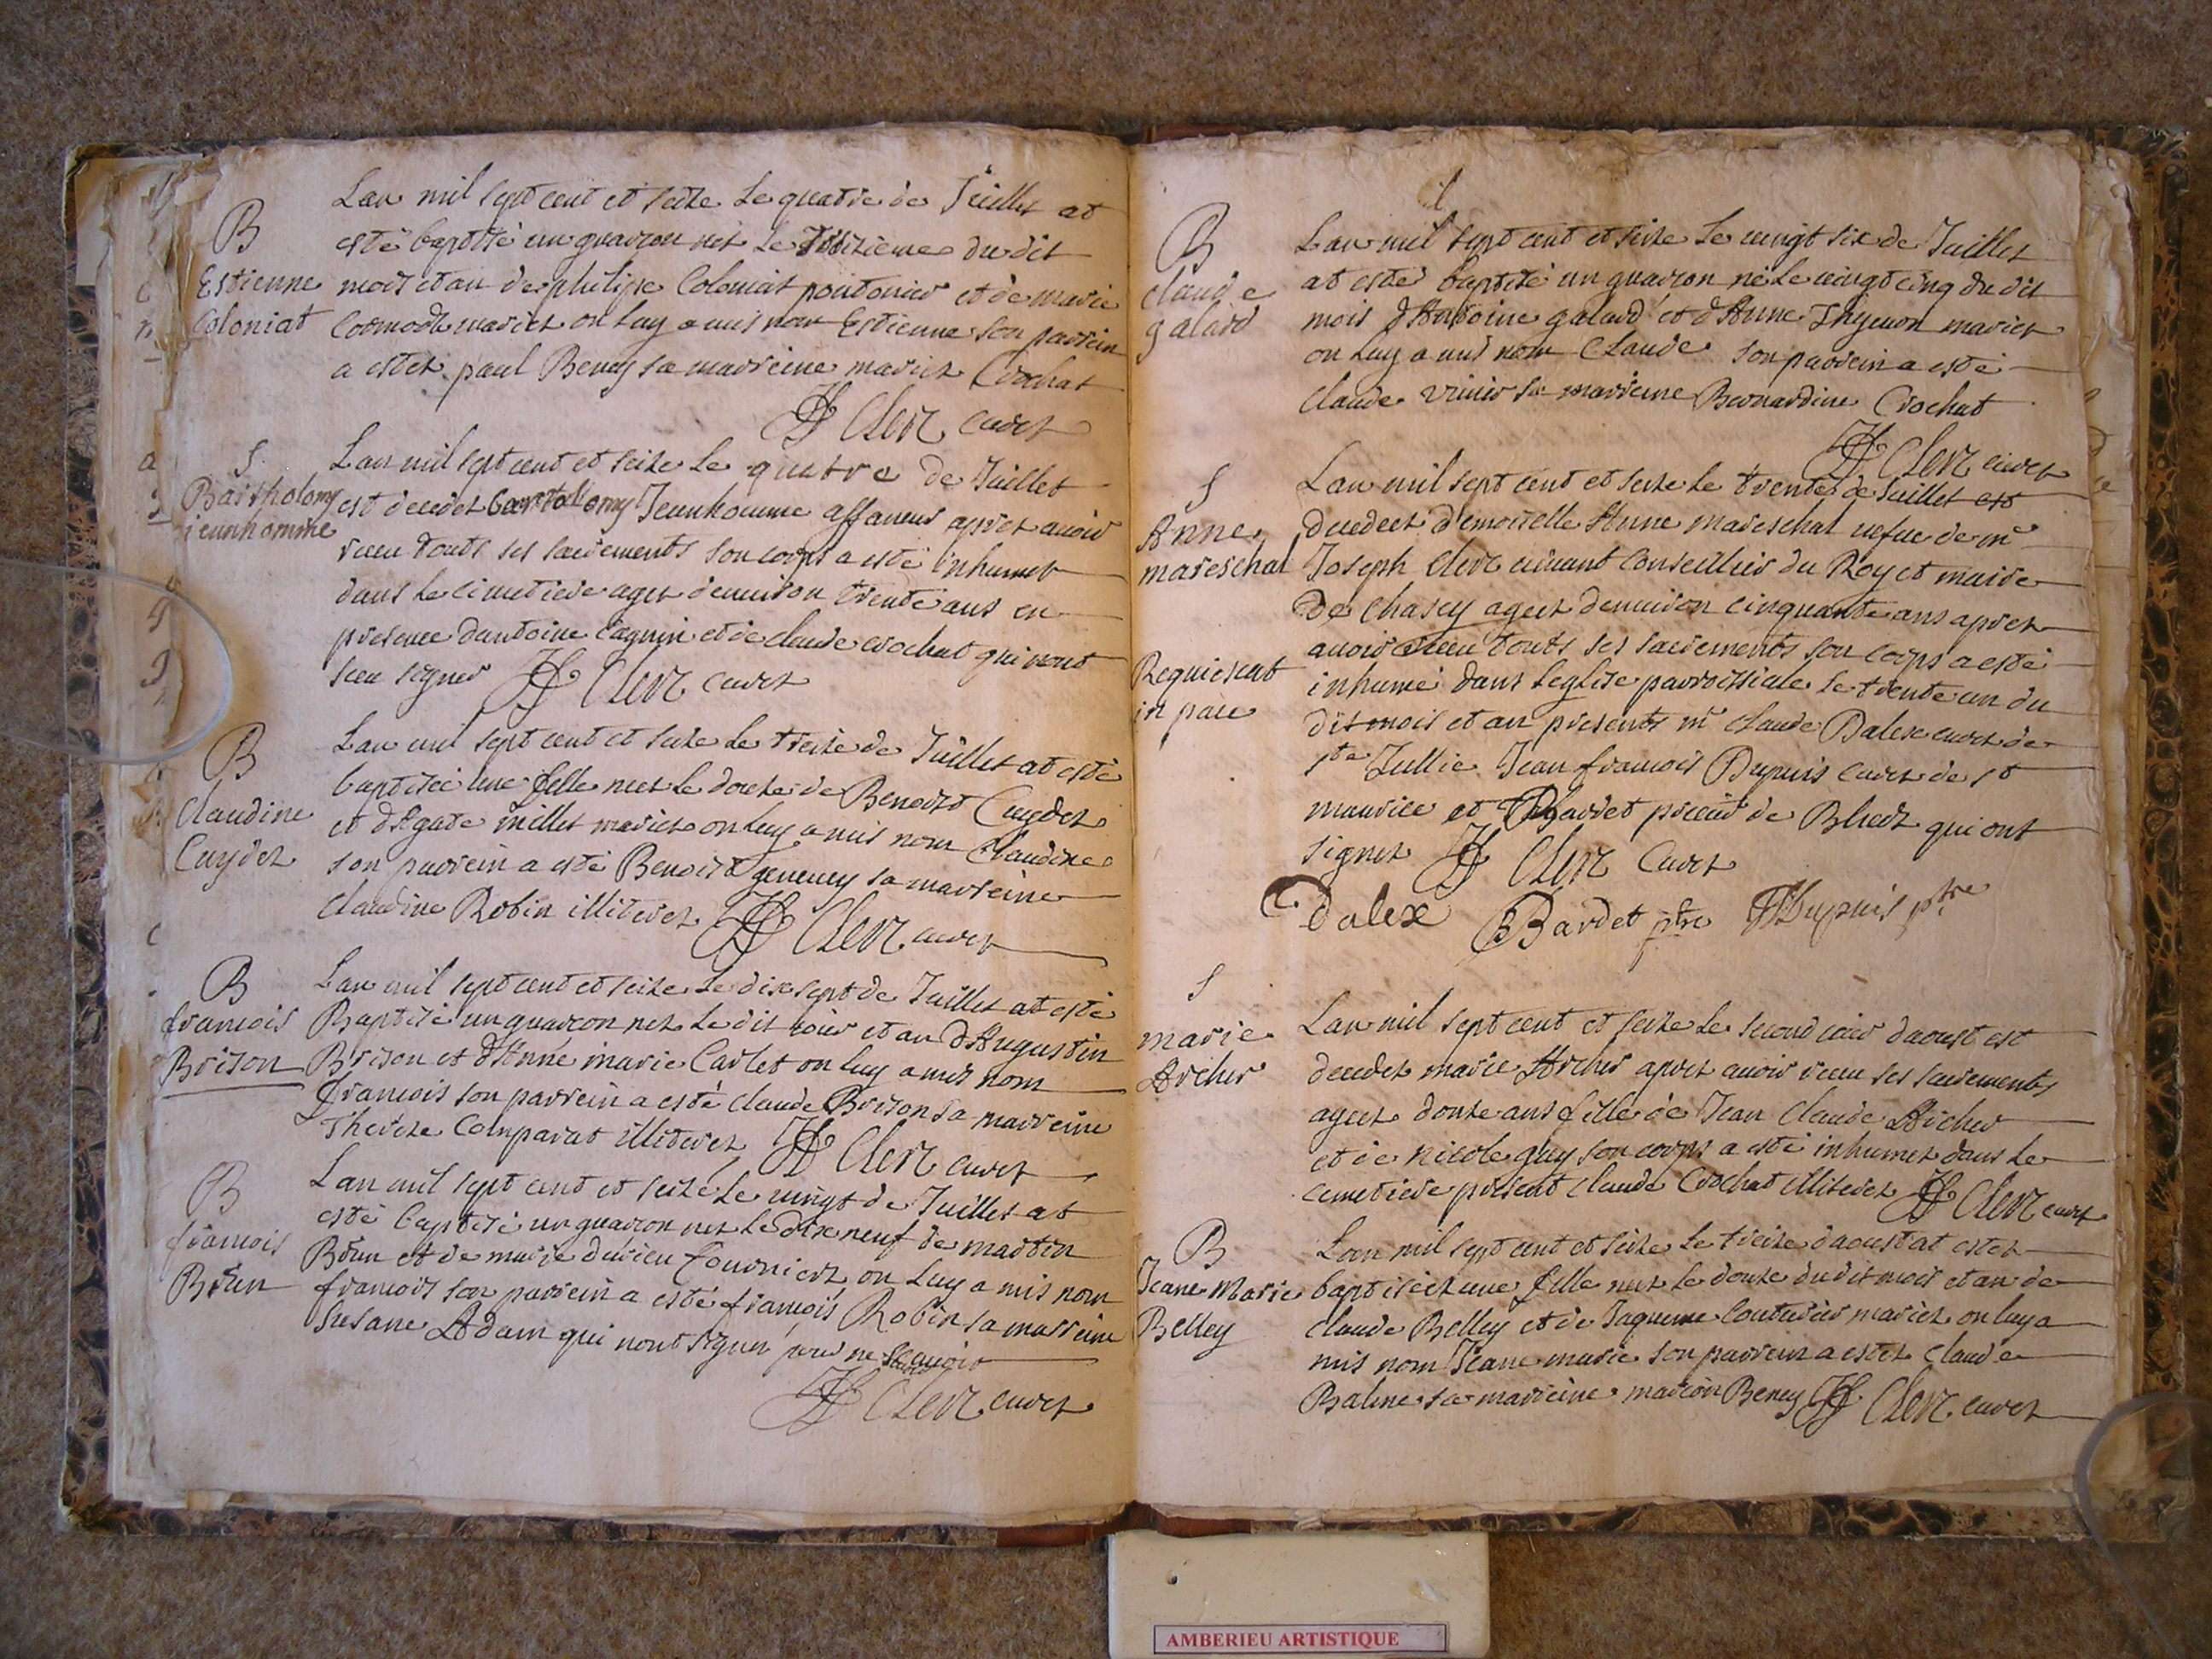 B
Estienne
Coloniat
Lan mil sept cent et seize le quatre de Juillet at
esté baptisé un guarcon net le troizieme du dit
mois et an de philipe Coloniat pontonier et de marie
mariez on luy a mis nom Estienne son parrein
a estez paul Beney sa marreine mariez Crochat
Clerc curez
S
Bartholomy
ieunhomme
Lan mil sept cent et seize le quatre de Juillet
est decedez bartollomy Jeunhomme affaneur aprez avoir
receu touts ses sacrements son corps a esté inhumez
dans le cimetiere agez denviron trente ans en
presence dantoine cagnin et de claude crochat qui nont
sceu signer Clerc curez
B
Claudine
Cuydez
Lan mil sept cent et seize le treize de Juillet at esté
baptisée une fille nez le douze de Benoist Cuydez
et dAgate millet mariez on luy a mis nom Claudine
son parrein a esté Benoist geneney sa marreine
Claudine Robin illiterez Clerc curez
B
francois
Brison
Lan mil sept cent et seize le dix sept de Juillet at esté
Baptisé un guarcon nez le dit iour et an dAugustin
Brison et dAnne marie Carlet on luy a mis nom
francois son parrein a esté claude Brison sa marreine
Therese Comparat illiterez Clerc curez
B
francois
Brun
Lan mil sept cent et seize le vingt de Juillet at
esté baptisé un guarcon nez le dix neuf de martin
Brun et de marie durieu Couvriert on luy a mis nom
francois son parrein a esté francois Robin sa marreine
Susane Adam qui nont signer pour ne scavoir
Clerc curez
B
claude
galard
Lan mil sept cent et seize le vingt six de Juillet
at esté baptisé un guarcon né le vingt cinq du dit
mois dAntoine galard et dAnne Thyenon mariez
on luy a mis nom Claude son parrein a esté
claude vivier sa marreine Bernardine Crochat
Clerc curez
S
Anne
mareschal
Requiescat
in pace
Lan mil sept cent et seize le trente de Juillet est
decedeez demoiselle Anne mareschal vefve de mr
Joseph Clerc vivant Conseillier du Roy et maire
de Chasey ageez denviron cinquante ans aprez
avoir receu touts ses sacrements son corps a esté
inhumé dans leglise parroissiale le trente un du
dit mois et an presents mr claude Dalex curez de
ste Jullie Jean francois Dupuis curez de st
maurice et Bardet de Blied qui ont
signez Clerc Curez
C Dalex Bardet ptre Dupuis ptre
S
marie
Archer
Lan mil sept cent et seize le second iour daoust est
decedez marie Archer aprez avoir receu ses sacrements
ageez douze ans fille de Jean Claude Archer
et de nicole guy son corps a esté inhumez dans le
cemetiere present claude Crochat illiterez Clerc curez
B
Jeane Marie
Belley
Lan mil sept cent et seize le treize daoust at estez
baptiséez une fille nez le douze du dit mois et an de
claude Belley et de Jaqueme Couturier mariez on luy a
mis nom Jeane marie son parrein a estez claude
Baline sa marreine marion Beney Clerc curez
AMBERIEU ARTISTIQUE